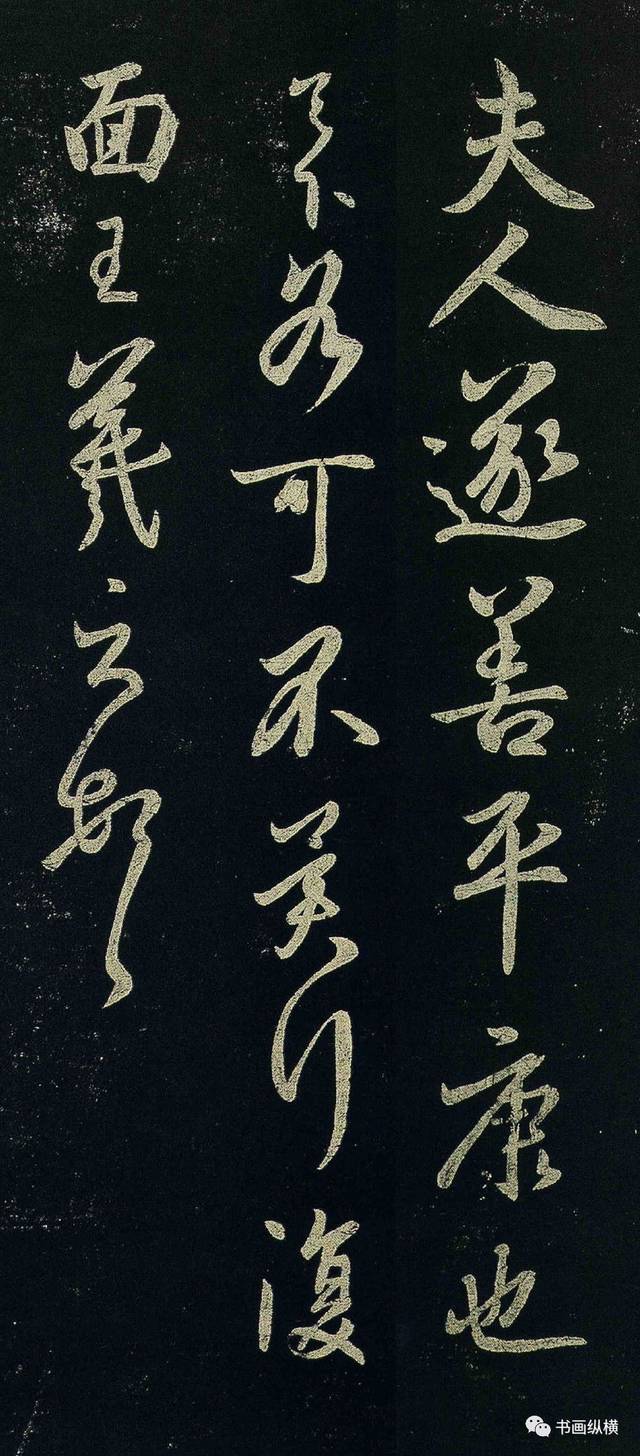 夫人遂善平康也
足下各可不冀行復
面王羲之頓首
书画纵横